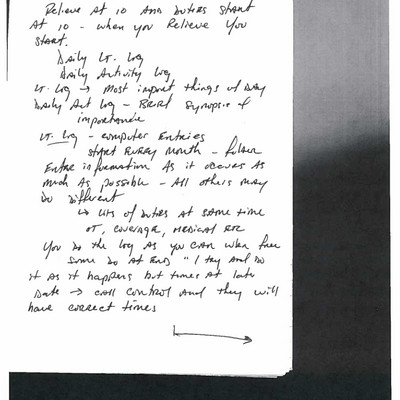 Relieve At 10 Ann Duties Start
At 10 - when you Relieve you
Start.
Daily Lt. Log
Daily Activity Log
Lt. Log → Most import things of Day
Daily Act Log - Brief Synopsis of
importance
Lt. Log - computer Entries
Start Every Month - folder
Enter information As it occurs as
much As possible - All others may
Do Different
↳ lots of Duties At same time
OT, coverage, medical etc
You Do the log As you can when free
Some Do At End " I try And Do
it As it happens but times At late
Date → call control And they will
have correct times